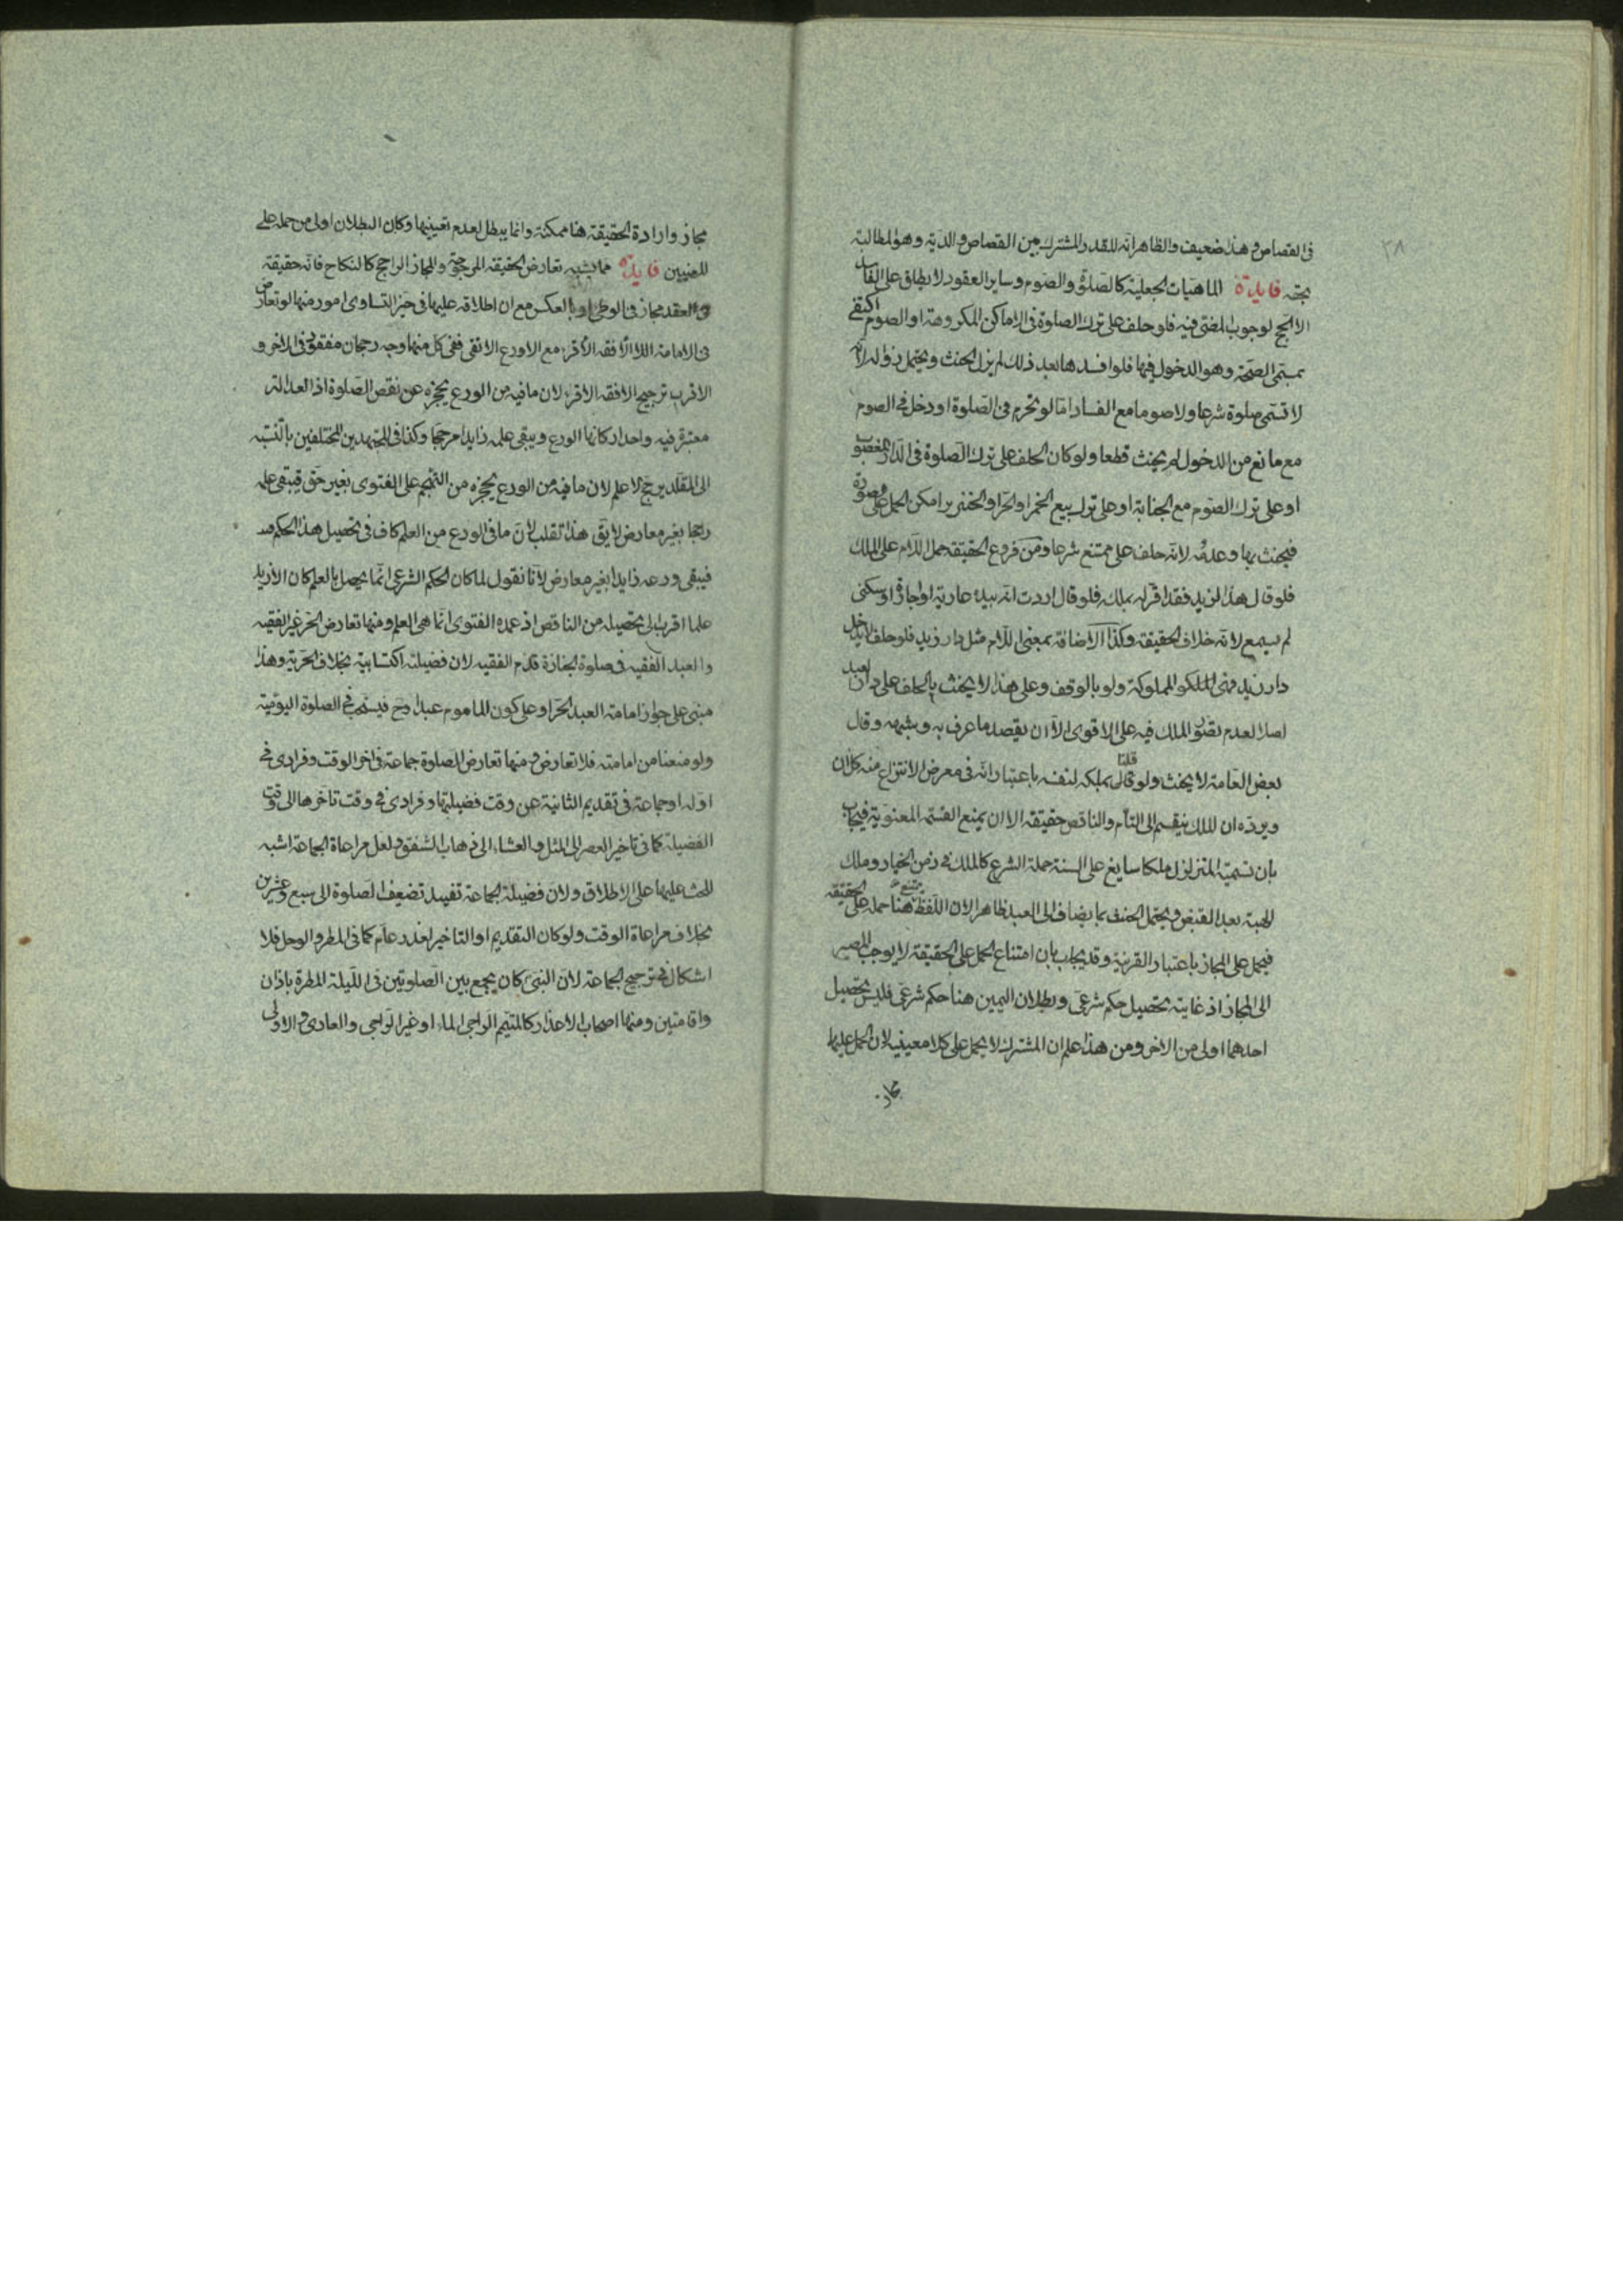 ٣٨
فى القصاص وهذا ضعيف والظاهر انه للقدر المشترك بين القصاص والدية وهو المطالبة
بحقه فايدة الماهيات الجعلية كالصلوة والصوم وساير العقود لا يطلق على الفاسد
الا الحج لوجوب المضى فيه فلو حلف على ترك الصلوة فى الاماكن المكروهة او الصوم اكتفى
بمسمى الصحة وهو الدخول فيها فلو افسدها بعد ذلك لم يزل الحنث ويحتمل زواله لانه
لا تسمى صلوة شرعا ولا صوما مع الفساد اما لو تحرم فى الصلوة او دخل فى الصوم
مع مانع من الدخول لم يحنث قطعا ولو كان الحلف على ترك الصلوة فى الدار المغصوب
او على ترك الصوم مع الجنابة او على ترك بيع الخمر او الحر او الخنزير امكن الحمل على صورة
فيحنث بها وعدمه لانه حلف على ممتنع شرعا ومن فروع الحقيقة حمل اللام على الملك
فلو قال هذا لزيد فقد اقر له بملك فلو قال اردت انه بيده عارية او اجارة او سكنى
لم يسمع لانه خلاف الحقيقة وكذا الاضافة بمعنى اللام مثل دار زيد فلو حلف لا يدخل
دار زيد فهى المملوكة ولو بالوقف وعلى هذا لا يحنث بالحلف على دار العبد
اصلا لعدم تصور الملك فيه على الاقوى الا ان يقصد ما عرف به وشبهه وقال
بعض العامة لا يحنث ولو قلنا بملكه لنفسه باعتبار انه فى معرض الانتزاع منه كل ان
ويرده ان الملك ينقسم الى التام والناقص حقيقة الا ان يمنع القسمة المعنوية فيجاب
بان تسمية المتزلزل ملكا سايغ على السنة حملة الشرع كالملك فى زمن الخيار وملك
الهبة بعد القبض ويحتمل الحنث بما يضاف الى العبد ظاهرا لان اللفظ يمتنع هنا حمله على الحقيقة
فيحمل على المجاز باعتبار القرينة وقد يجاب بان امتناع الحمل على الحقيقة لا يوجب المصير
الى المجاز اذ غايته تحصيل حكم شرعى وبطلان اليمين هنا حكم شرعى فليس تحصيل
احدهما اولى من الاخر ومن هذا علم ان المشترك لا يحمل على كلا معنييه لان الحمل عليهما
مجاز
مجاز وارادة الحقيقة هنا ممكنة وانما يبطل لعدم تعيينها وكان البطلان اولى من حمله على
المعنيين فايدة مما يشبه تعارض الحقيقة المرجوحة والمجاز الراجح كالنكاح فانه حقيقة
فى العقد مجاز فى الوطى او بالعكس مع ان اطلاقه عليهما فى حيز التساوى امور منها لو تعارض
فى الامامة الافقه الاقرء مع الاورع الاتقى ففى كل منهما وجه رجحان مفقود فى الاخر و
الاقرب ترجيح الافقه الاقرء لان ما فيه من الورع يحجزه عن نقص الصلوة اذ العدالة
معتبرة فيه واحد اركانها الورع ويبقى علمه زايدا مرجحا وكذا فى المجتهدين المختلفين بالنسبة
الى المقلد يرجح الاعلم لان ما فيه من الورع يحجزه من التهجم على الفتوى بغير حق فيبقى علمه
راجحا بغير معارض لا يق هذا تقلب لان ما فى الورع من العلم كاف فى تحصيل هذا الحكم
فيبقى ورعه زايدا بغير معارض لانا نقول لما كان الحكم الشرعى انما يحصل بالعلم كان الازيد
علما اقرب الى تحصيله من الناقص اذ عمده الفتوى انما هى العلم ومنها تعارض الحر غير الفقيه
والعبد الفقيه فى صلوة الجنازة قدم الفقيه لان فضيلته اكتسابية بخلاف الحرية وهذا
مبنى على جواز امامة العبد الحر او على كون الماموم عبدا وح فيستحب فى الصلوة اليومية
ولو منعنا من امامته فلا تعارض ومنها تعارض الصلوة جماعة فى اخر الوقت وفرادى فى
اوله او جماعة فى تقديم الثانية عن وقت فضيلتها وفرادى فى وقت تاخرها الى وقت
الفضيلة كما فى تاخير العصر الى المثل والعشاء الى ذهاب الشفق ولعل مراعاة الجماعة اشبه
للحث عليها على الاطلاق ولان فضيلة الجماعة تفيد تضعيف الصلوة الى سبع وعشرين
بخلاف مراعاة الوقت ولو كان التقديم او التاخير لعذر عام كما فى المطر والوحل فلا
اشكال فى ترجيح الجماعة لان النبى كان يجمع بين الصلوتين فى الليلة المطرة باذان
واقامتين ومنها اصحاب الاعذار كالمتيمم الراجى الماء او غير الراجى والعادى والاولى